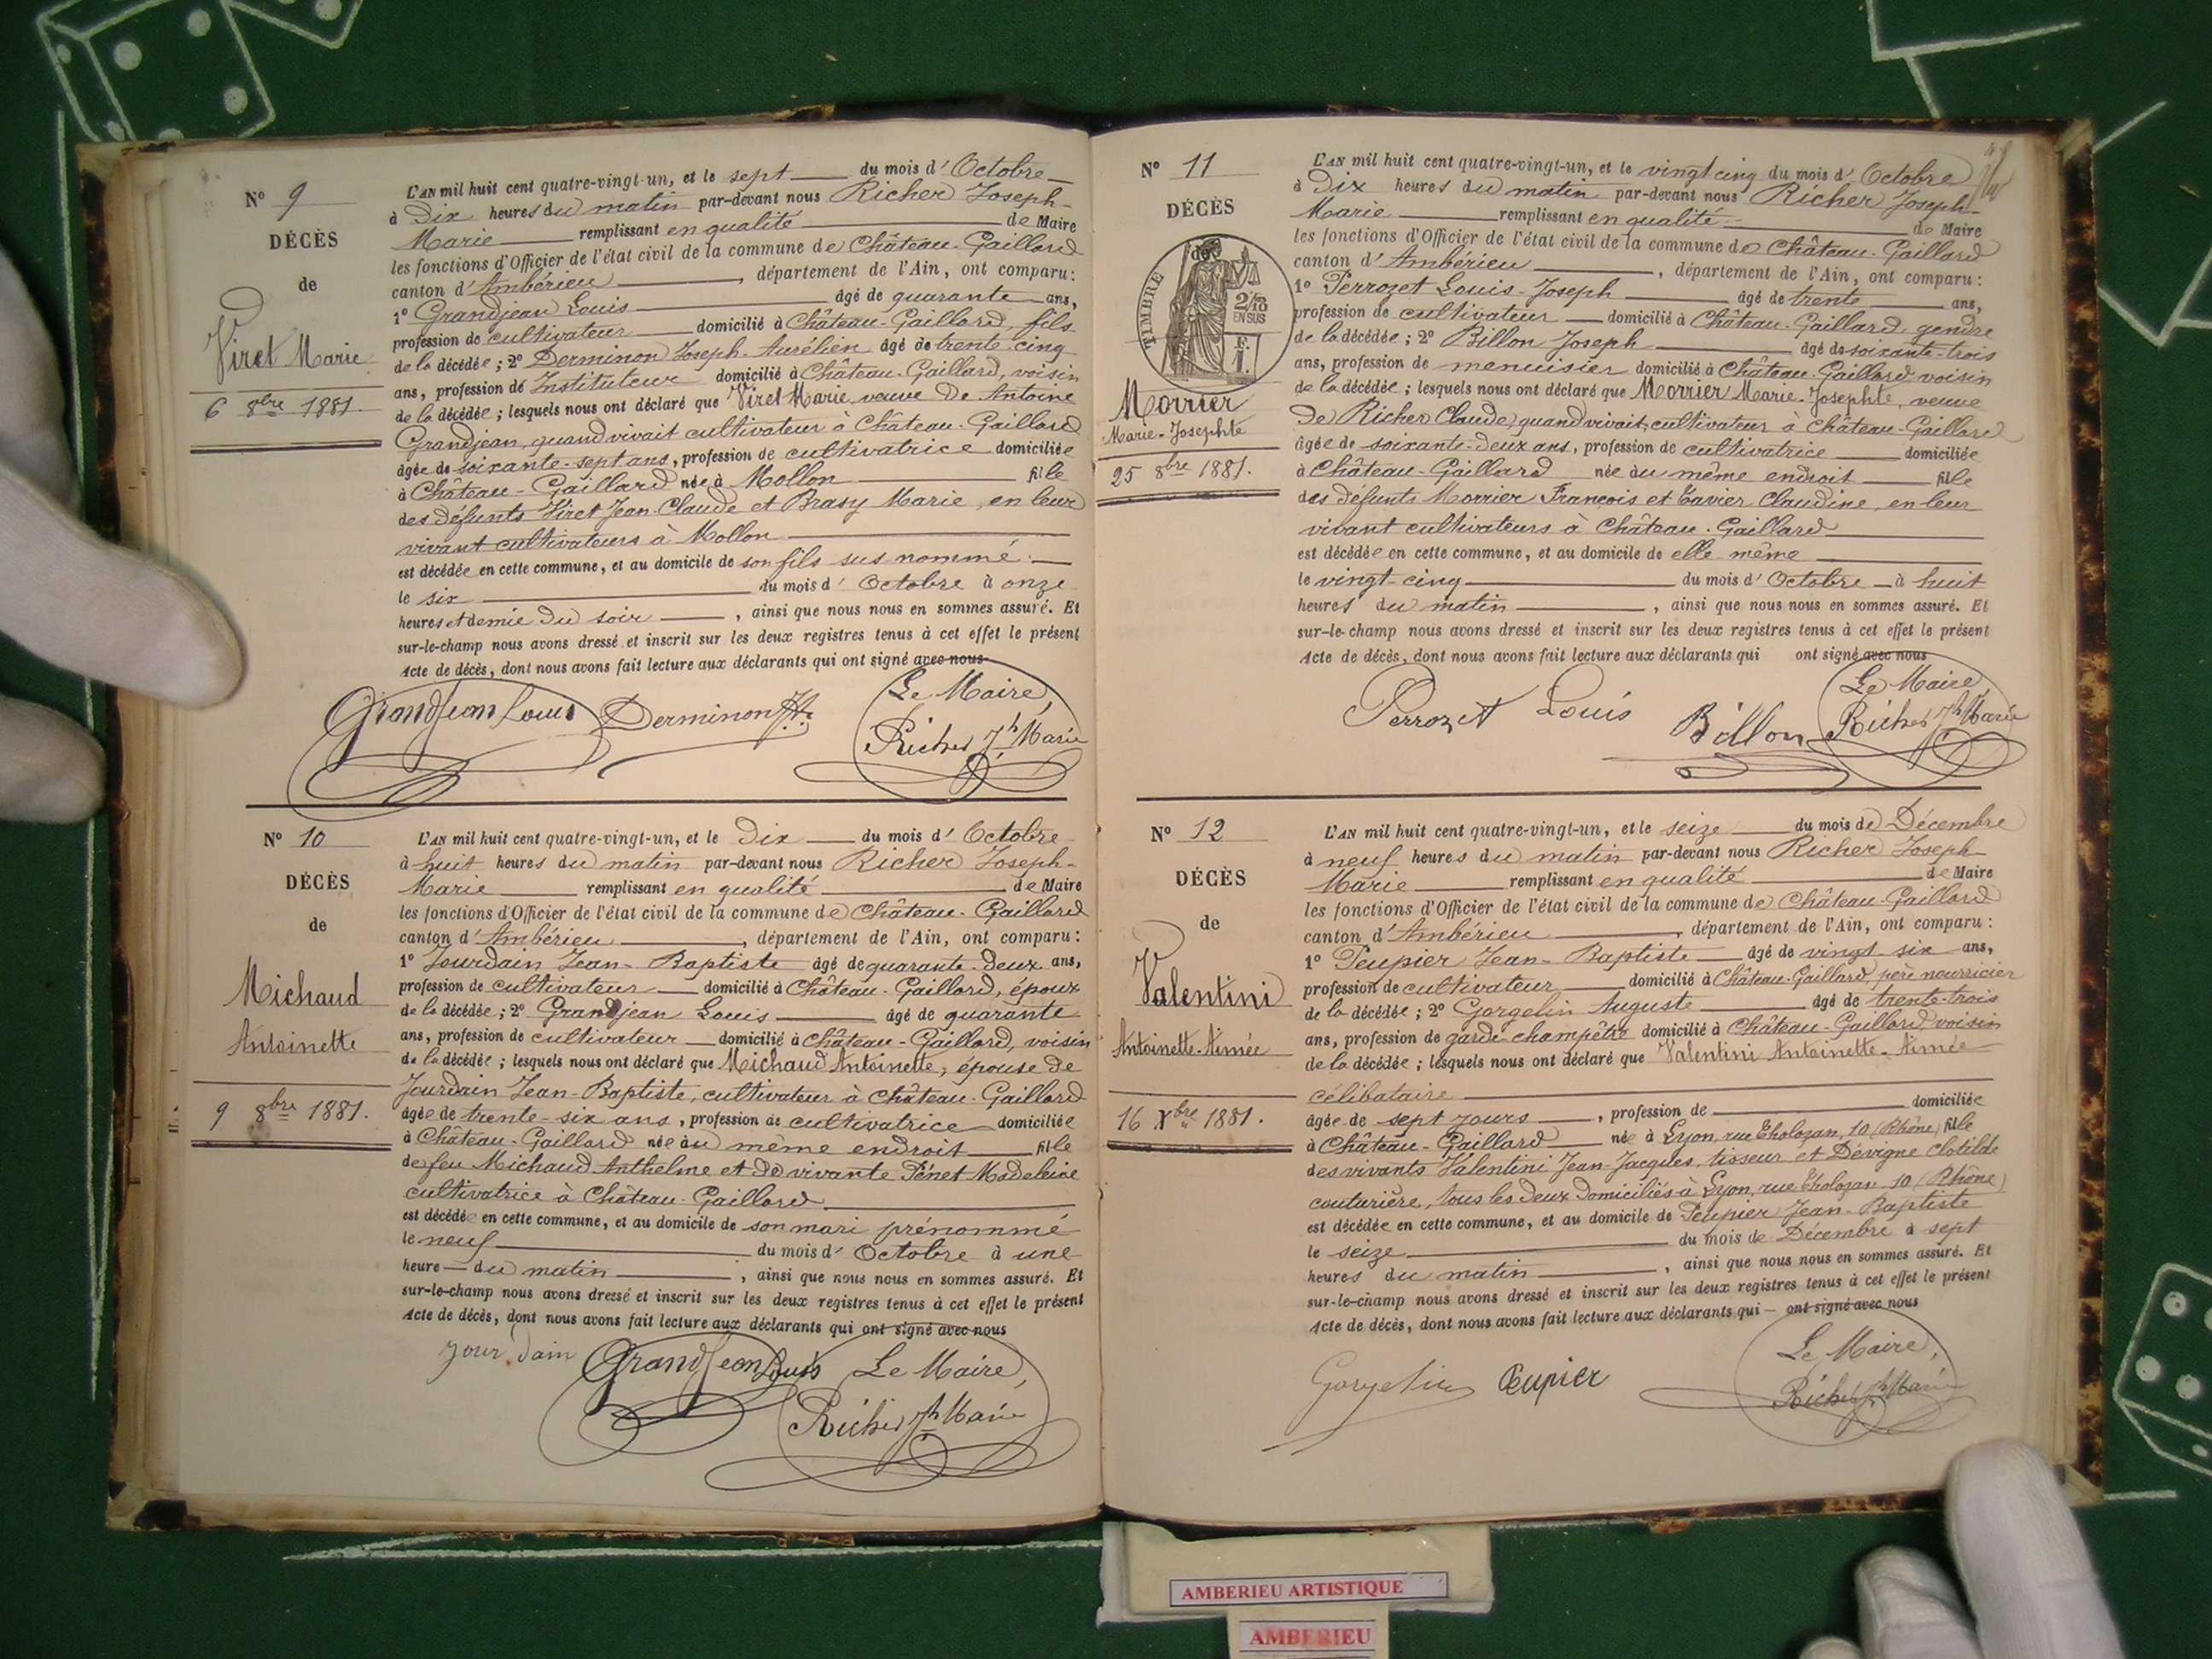 N° 9
DÉCÈS
de
Viret Marie
6 8bre 1881.
L'AN mil huit cent quatre-vingt-un, et le sept du mois d'Octobre
à Dix heures du matin par-devant nous Richer Joseph-
Marie remplissant en qualité de Maire
les fonctions d'Officier de l'état civil de la commune de Château-Gaillard
canton d'Ambérieu, département de l'Ain, ont comparu:
1° Grandjean Louis âgé de quarante ans,
profession de cultivateur domicilié à Château-Gaillard, fils
de la décédée; 2° Derminon Joseph-Aurélien âgé de trente-cinq
ans, profession de Instituteur domicilié à Château-Gaillard, voisin
de la décédée; lesquels nous ont déclaré que Viret Marie veuve De Antoine
Grandjean, quand vivait cultivateur à Château-Gaillard
âgée de soixante-sept ans, profession de cultivatrice domiciliée
à Château-Gaillard née à Mollon fille
des défunts Viret Jean-Claude et Brasy Marie, en leur
vivant cultivateurs à Mollon
est décédée en cette commune, et au domicile de son fils sus-nommé
le six du mois d'Octobre à onze
heures et demie du soir, ainsi que nous nous en sommes assuré. Et
sur-le-champ nous avons dressé et inscrit sur les deux registres tenus à cet effet le présent
Acte de décès, dont nous avons fait lecture aux déclarants qui ont signé avec nous
Grandjean Louis Derminon Le Maire,
Richer Jh Marie
N° 10
DÉCÈS
de
Michaud
Antoinette
9 8bre 1881.
L'AN mil huit cent quatre-vingt-un, et le Dix du mois d'Octobre
à huit heures du matin par-devant nous Richer Joseph-
Marie remplissant en qualité de Maire
les fonctions d'Officier de l'état civil de la commune de Château-Gaillard
canton d'Ambérieu, département de l'Ain, ont comparu:
1° Jourdain Jean-Baptiste âgé de quarante-deux ans,
profession de cultivateur domicilié à Château-Gaillard, époux
de la décédée; 2° Grandjean Louis âgé de quarante
ans, profession de cultivateur domicilié à Château-Gaillard, voisin
de la décédée; lesquels nous ont déclaré que Michaud Antoinette, épouse de
Jourdain Jean-Baptiste, cultivateur à Château-Gaillard
âgée de trente-six ans, profession de cultivatrice domiciliée
à Château-Gaillard née au même endroit fille
de feu Michaud Anthelme et de vivante Fénet Madeleine
cultivatrice à Château-Gaillard
est décédée en cette commune, et au domicile de son mari prénommé
le neuf du mois d'Octobre à une
heure du matin, ainsi que nous nous en sommes assuré. Et
sur-le-champ nous avons dressé et inscrit sur les deux registres tenus à cet effet le présent
Acte de décès, dont nous avons fait lecture aux déclarants qui ont signé avec nous
Jourdain Grandjean Louis Le Maire,
Richer Jh Marie
N° 11
DÉCÈS
de
TIMBRE
2/10
EN SUS
F.
1.
Morrier
Marie-Josephte
25 8bre 1881.
L'AN mil huit cent quatre-vingt-un, et le vingt cinq du mois d'Octobre
à Dix heures du matin par-devant nous Richer Joseph-
Marie remplissant en qualité de Maire
les fonctions d'Officier de l'état civil de la commune de Château-Gaillard
canton d'Ambérieu, département de l'Ain, ont comparu:
1° Perrozet Louis-Joseph âgé de trente ans,
profession de cultivateur domicilié à Château-Gaillard, gendre
de la décédée; 2° Billon Joseph âgé de soixante-trois
ans, profession de menuisier domicilié à Château-Gaillard voisin
de la décédée; lesquels nous ont déclaré que Morrier Marie-Josephte, veuve
De Richer Claude, quand vivait, cultivateur à Château-Gaillard
âgée de soixante-deux ans, profession de cultivatrice domiciliée
à Château-Gaillard née au même endroit fille
des défunts Morrier François et Tavier Claudine, en leur
vivant cultivateurs à Château-Gaillard
est décédée en cette commune, et au domicile de elle-même
le vingt-cinq du mois d'Octobre à huit
heures du matin, ainsi que nous nous en sommes assuré. Et
sur-le-champ nous avons dressé et inscrit sur les deux registres tenus à cet effet le présent
Acte de décès, dont nous avons fait lecture aux déclarants qui ont signé avec nous
Perrozet Louis Billon Le Maire,
Richer Jh Marie
N° 12
DÉCÈS
de
Valentini
Antoinette-Aimée
16 Xbre 1881.
L'AN mil huit cent quatre-vingt-un, et le seize du mois de Décembre
à neuf heures du matin par-devant nous Richer Joseph
Marie remplissant en qualité de Maire
les fonctions d'Officier de l'état civil de la commune de Château-Gaillard
canton d'Ambérieu, département de l'Ain, ont comparu:
1° Peupier Jean-Baptiste âgé de vingt-six ans,
profession de cultivateur domicilié à Château-Gaillard, père nourricier
de la décédée; 2° Gorgelin Auguste âgé de trente-trois
ans, profession de garde-champêtre domicilié à Château-Gaillard voisin
de la décédée; lesquels nous ont déclaré que Valentini Antoinette-Aimée
célibataire
âgée de sept jours, profession de domiciliée
à Château-Gaillard née à Lyon, rue Tholozan, 10 (Rhône) fille
des vivants Valentini Jean-Jacques, tisseur et Dévigne Clotilde
couturière, tous les deux domiciliés à Lyon, rue Tholozan 10 (Rhône)
est décédée en cette commune, et au domicile de Peupier Jean-Baptiste
le seize du mois de Décembre à sept
heures du matin, ainsi que nous nous en sommes assuré. Et
sur-le-champ nous avons dressé et inscrit sur les deux registres tenus à cet effet le présent
Acte de décès, dont nous avons fait lecture aux déclarants qui ont signé avec nous
Gorgelin Peupier Le Maire,
Richer Jh Marie
AMBERIEU ARTISTIQUE
AMBERIEU